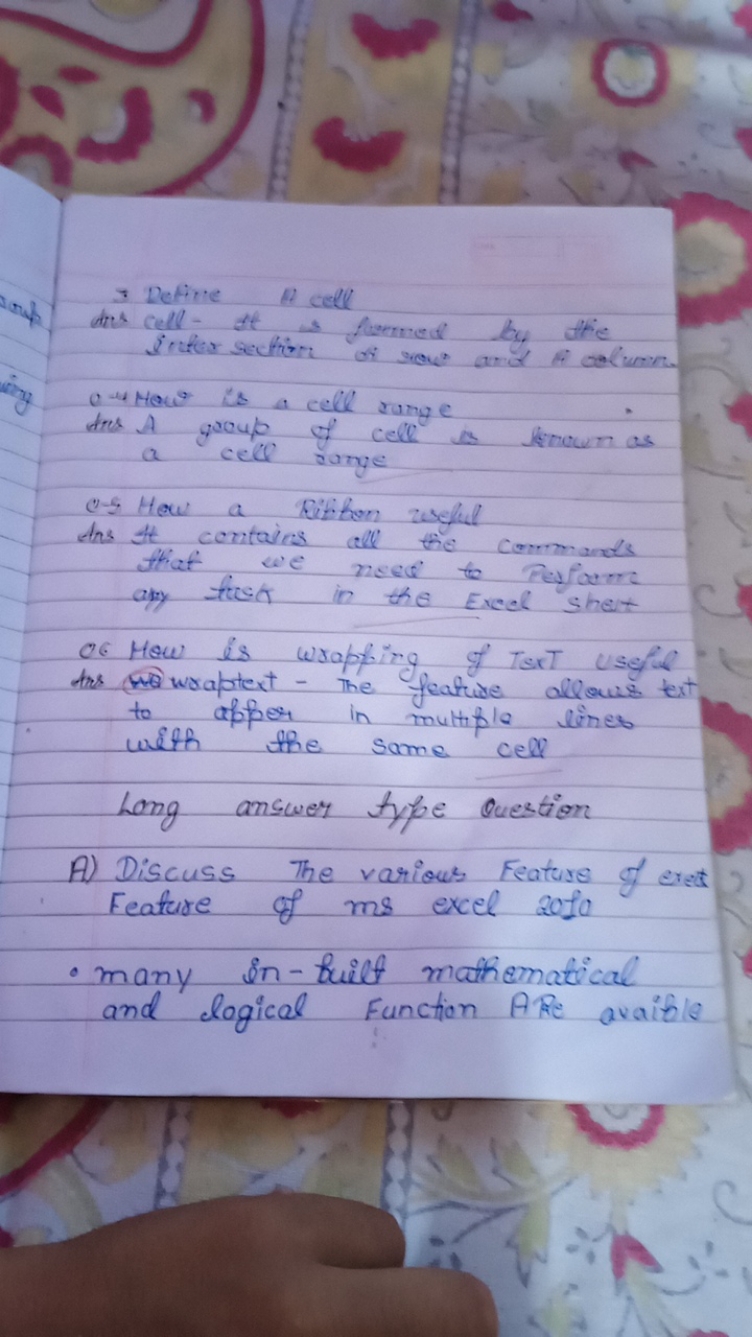 3 Define A cell
Ans cell - It is formed by the
inter section of row and A column.
Q-4 How is a cell range
Ans A group of cell is known as
a cell range
Q-5 How a Ribbon useful
Ans It contains all the commands
that we need to Perform
any task in the Excel Shert
Q6 How is wrapping of TexT useful
Ans wraptext - The feature allows text
to apper in multiple lines
with the same cell
Long answer type Question
A) Discuss The various Feature of
Feature of ms excel 2010
• many In-built mathematical
and logical Function ARe avaible